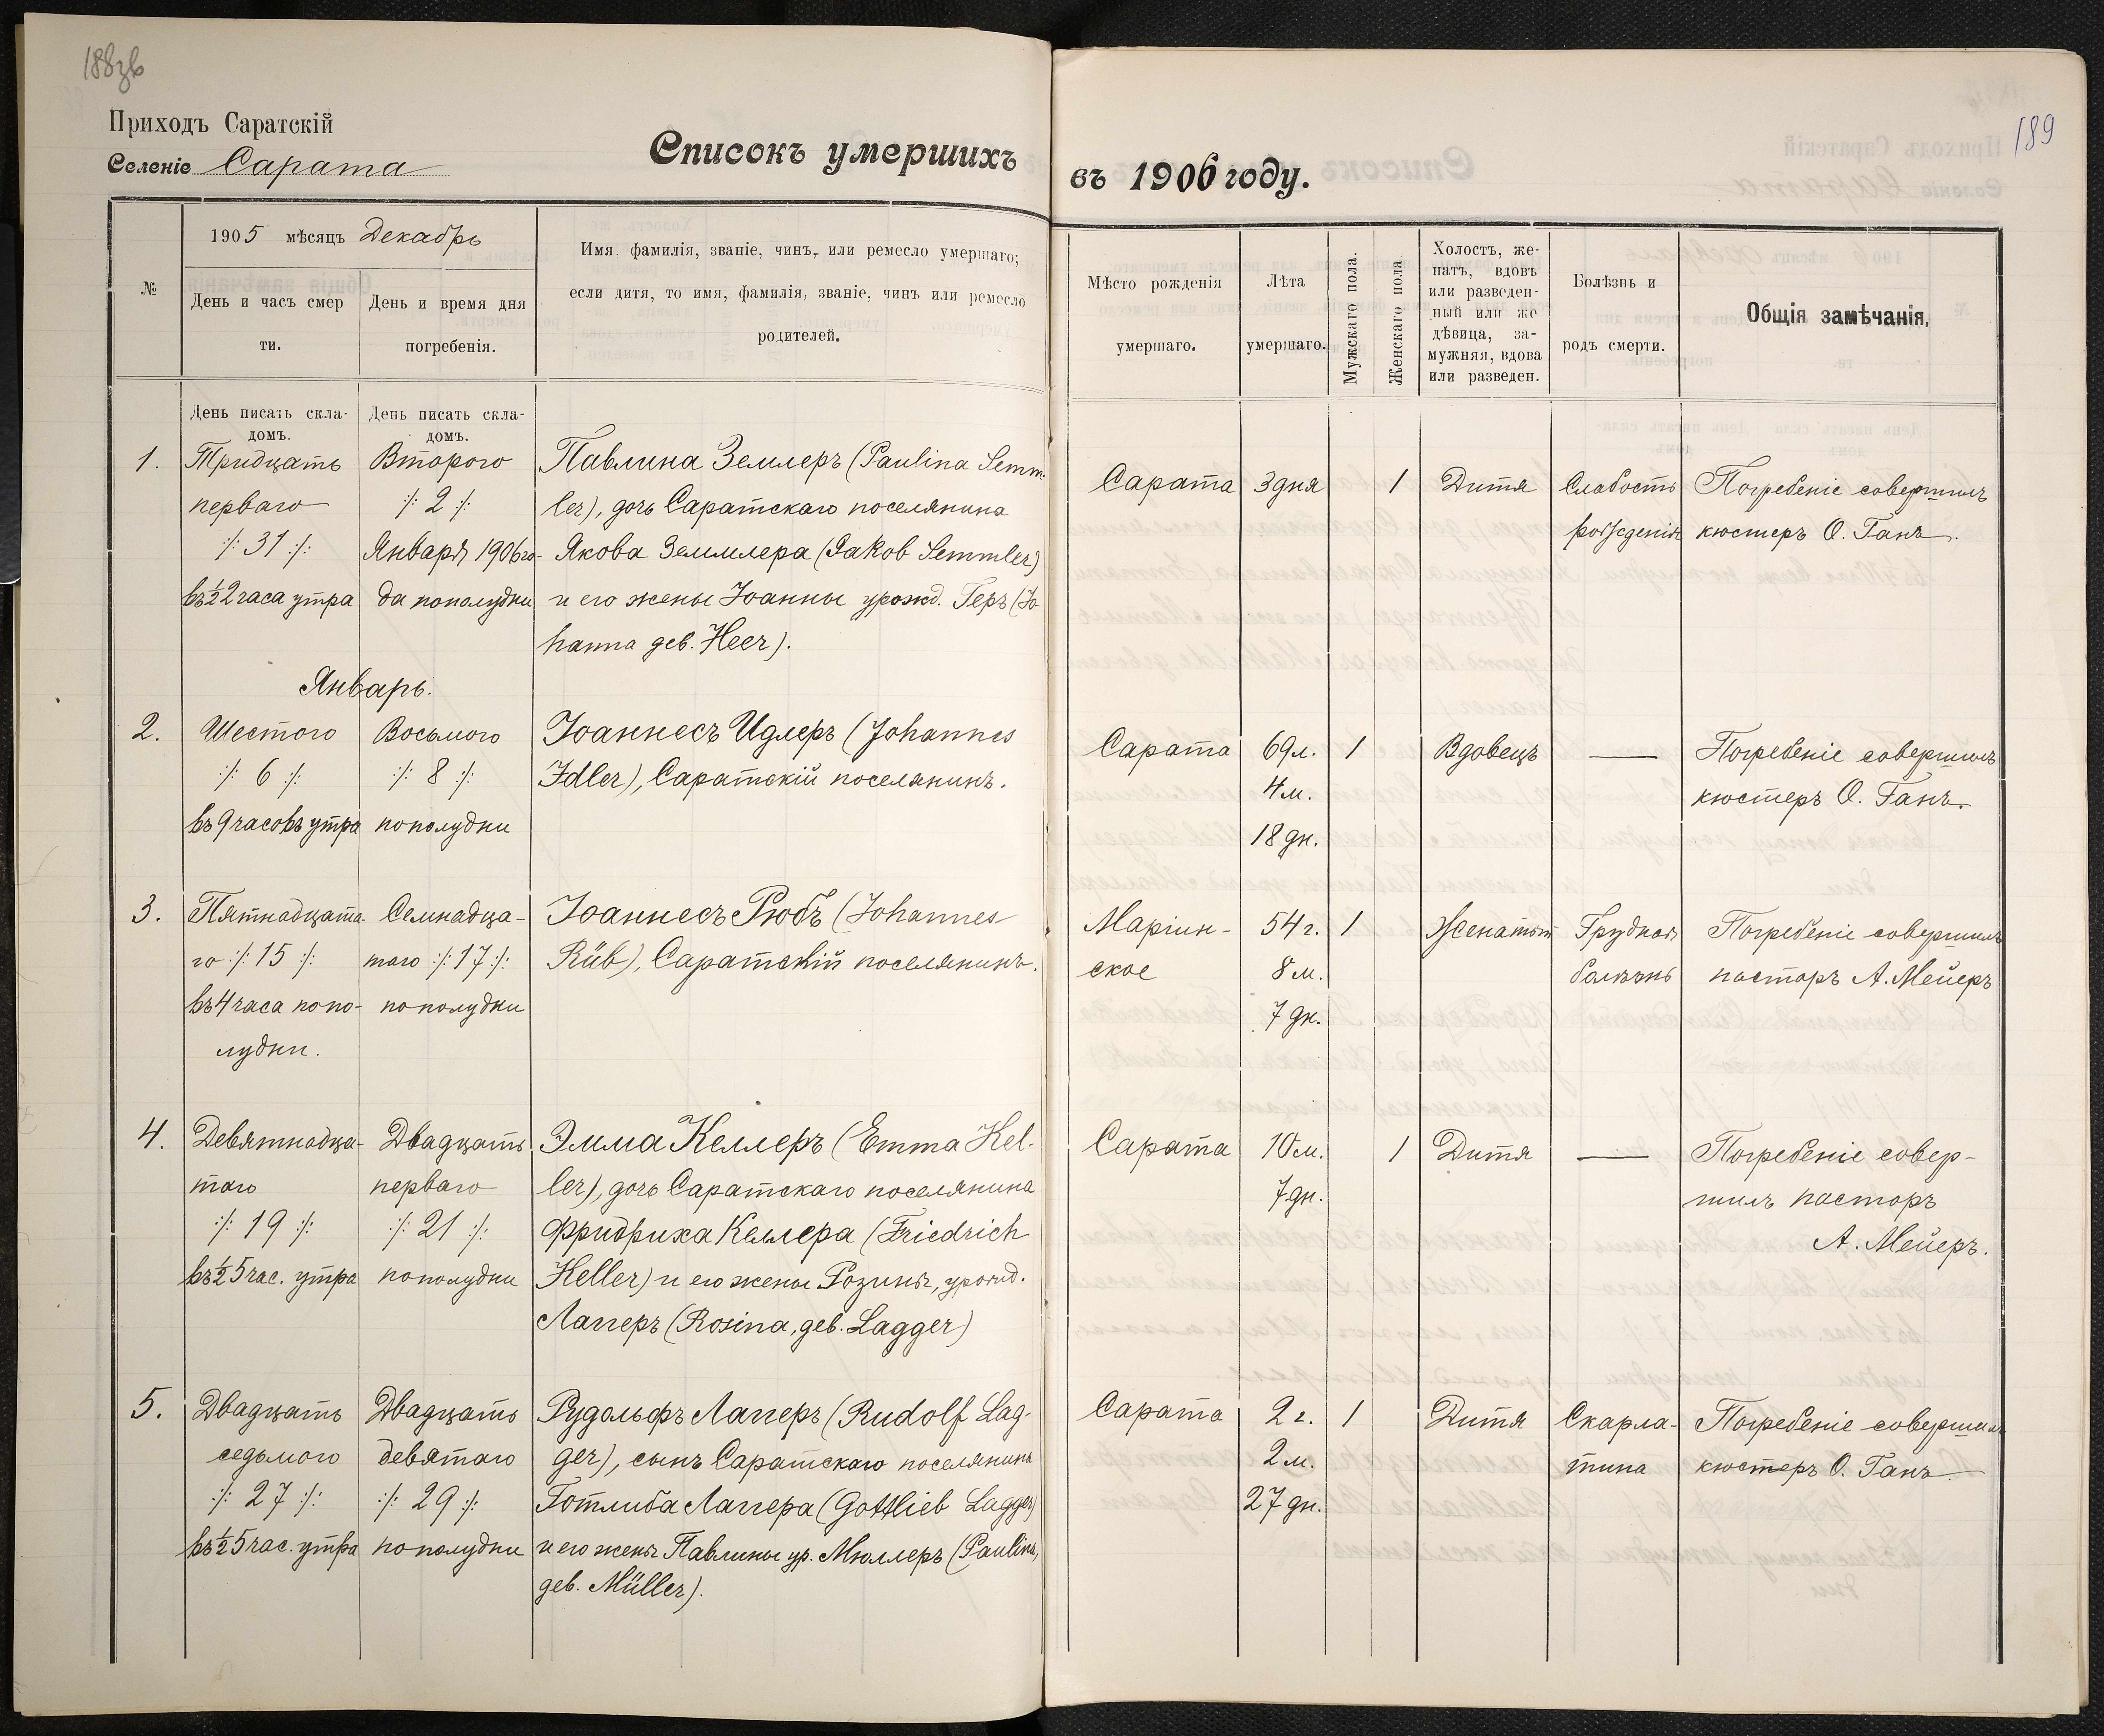 188зв
189
Приходъ Саратскій
Селеніе Сарата
Списокъ умершихъ
въ 1906 году.
№
1905 мѣсяцъ Декабрь
День и часъ смер
ти.
День и время дня
погребенія.
Имя, фамилія, званіе, чинъ, или ремесло умершаго;
если дитя, то имя, фамилія, званіе, чинъ или ремесло
родителей.
Мѣсто рожденія
умершаго.
Лѣта
умершаго.
Мужскаго пола.
Женскаго пола
Холостъ, же-
натъ, вдовъ
или разведен-
ный или же
дѣвица, за-
мужняя, вдова
или разведен.
Болѣзнь и
родъ смерти.
Общія замѣчанія,
День писать скла-
домъ.
День писать скла-
домъ.
1.
Тридцать
перваго
·/· 31 ·/·
въ ½2 часа утра
Второго
·/· 2 ·/·
Января 1906 го-
да пополудни
Павлина Землеръ (Paulina Semm-
ler), дочь Саратскаго поселянина
Якова Земмлера (Jakob Semmler)
и его жены Іоанны урожд. Геръ (Jo-
hanna geb. Heer).
Сарата
3 дня
1
Дитя
Слабость
рожденія
Погребеніе совершилъ
кюстеръ О. Ганъ.
Январь.
2.
Шестого
·/· 6 ·/·
въ 9 часовъ утра
Восьмого
·/· 8 ·/·
пополудни
Іоаннесъ Идлеръ (Johannes
Idler), Саратскій поселянинъ.
Сарата
69 л.
4 м.
18 дн.
1
Вдовецъ
—
Погребеніе совершилъ
кюстеръ О. Ганъ.
3.
Пятнадцата-
го ·/· 15 ·/·
въ 4 часа попо-
лудни.
Семнадца-
таго ·/· 17 ·/·
пополудни
Іоаннесъ Рюбъ (Johannes
Rüb), Саратскій поселянинъ.
Маріин-
ское
54 г.
8 м.
7 дн.
1
Женатый
Грудная
болѣзнь
Погребеніе совершилъ
пасторъ А. Мейеръ
4.
Девятнадца-
таго
·/· 19 ·/·
въ ½5 час. утра
Двадцать
перваго
·/· 21 ·/·
пополудни
Эмма Келлеръ (Emma Kel-
ler), дочь Саратскаго поселянина
Фридриха Келлера (Friedrich
Keller) и его жены Розины, урожд.
Лаггеръ (Rosina, geb. Lagger)
Сарата
10 м.
7 дн.
1
Дитя
—
Погребеніе совер-
шилъ пасторъ
А. Мейеръ.
5.
Двадцать
седьмого
·/· 27 ·/·
въ ½5 час. утра
Двадцать
девятаго
·/· 29 ·/·
пополудни
Рудольфъ Лаггеръ (Rudolf Lag-
ger), сынъ Саратскаго поселянина
Готлиба Лаггера (Gottlieb Lagger)
и его жены Павлины ур. Мюллеръ (Paulina,
geb. Müller).
Сарата
2 г.
2 м.
27 дн.
1
Дитя
Скарла-
тина
Погребеніе совершилъ
кюстеръ О. Ганъ.